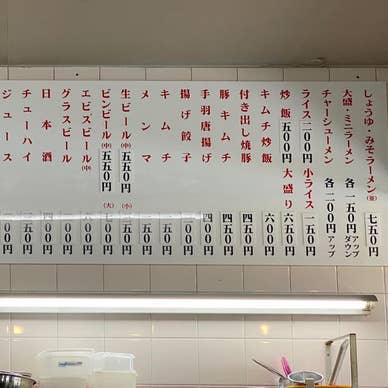 しょうゆ・みそラーメン(並) 七五〇円
大盛・ミニラーメン 各一五〇円 アップ ダウン
チャーシューメン 各二〇〇円アップ
ライス二〇〇円 小ライス 一五〇円
炒飯 五〇〇円 大盛り 六五〇円
キムチ炒飯 六〇〇円
付き出し焼豚 四五〇円
豚キムチ 四五〇円
手羽唐揚げ 四〇〇円
揚げ餃子 二〇〇円
キムチ 一五〇円
メンマ 一五〇円
生ビール(中) 五五〇円 (小)
ビンビール(中) 五五〇円 (大) 七〇〇円
エビスビール(中) 六〇〇円
グラスビール 〇〇円
日本酒 〇〇円
チューハイ 〇〇円
ジュース 〇〇円